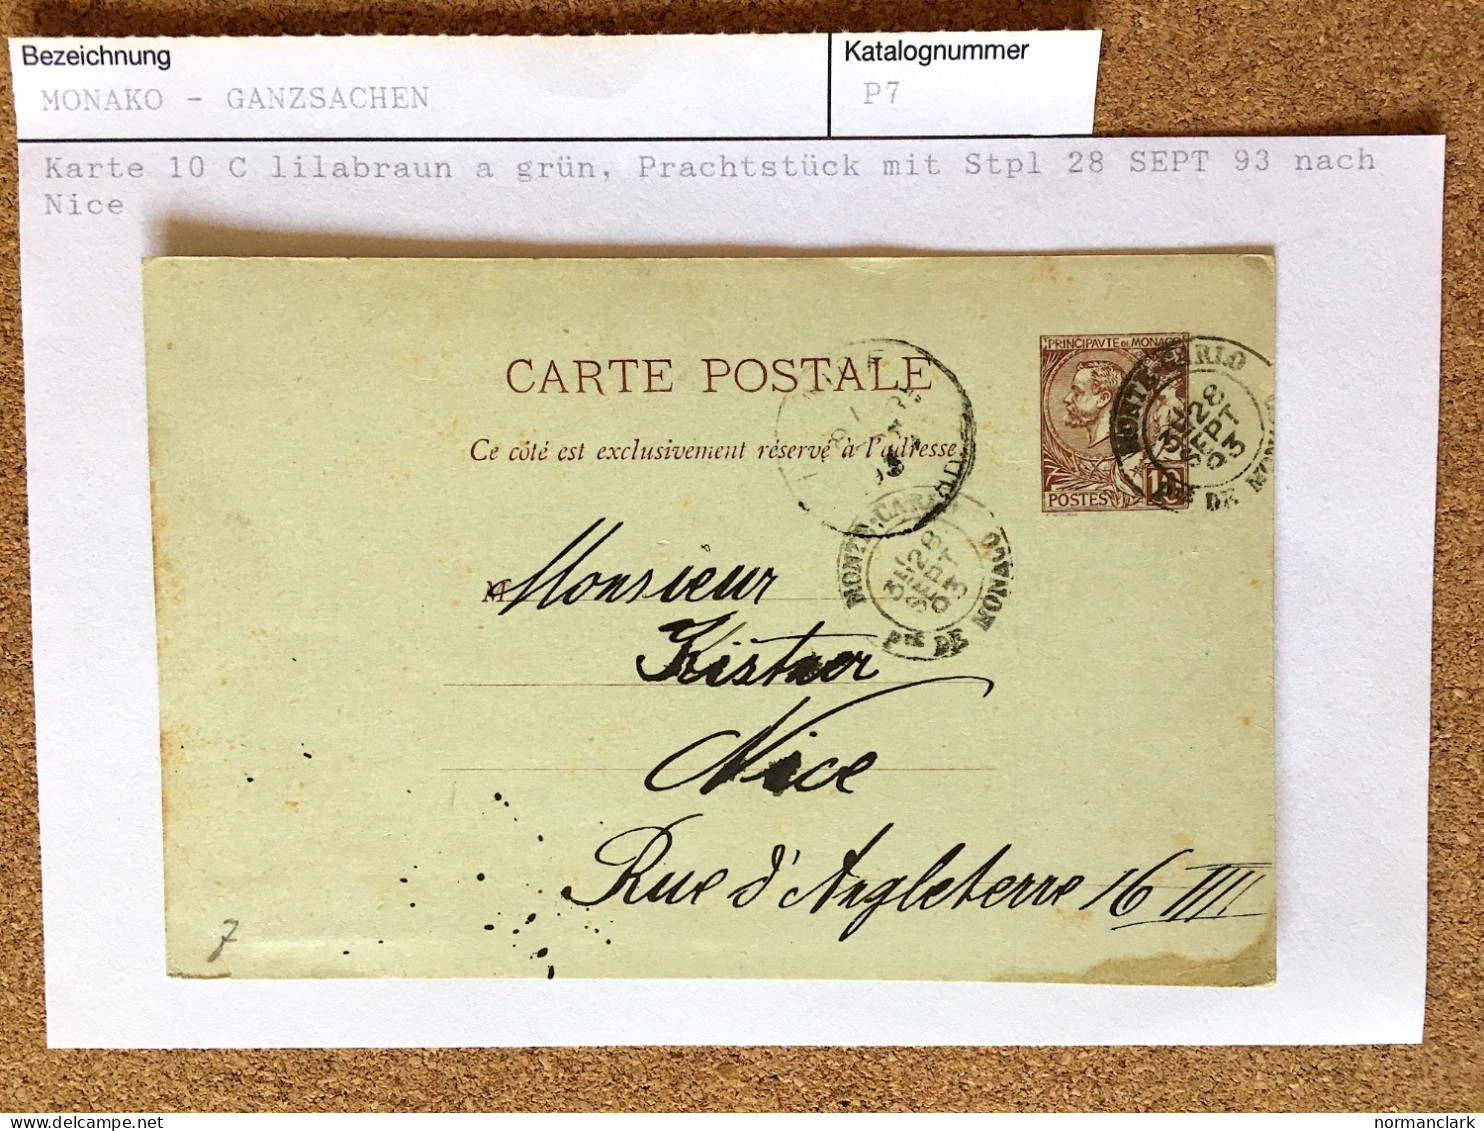 Bezeichnung
Katalognummer
MONAKO - GANZSACHEN
P7
Karte 10 C lilabraun a grün, Prachtstück mit Stpl 28 SEPT 93 nach
Nice
PRINCIPAVTE DE MONACO
CARTE POSTALE
Ce côté est exclusivement réservé à l'adresse
POSTES 10
MONTE-CARLO
28
SEPT
93
PTÉ DE MONACO
MONTE-CARLO
28
SEPT
93
PTÉ DE MONACO
M Monsieur
Kistner
Nice
Rue d'Angleterre 16 III
7
normanclark